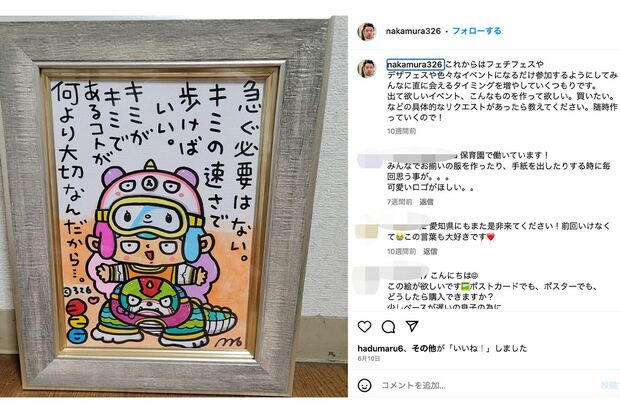 急ぐ必要はない。
キミの速さで
歩けば
いい。
キミが
キミで
あるコトが
何より大切なんだから…。
©326
326
nakamura326 • フォローする
nakamura326 これからはフェチフェスや
デザフェスや色々なイベントになるだけ参加するようにしてみ
んなに直に会えるタイミングを増やしていくつもりです。
出て欲しいイベント、こんなものを作って欲しい。買いたい。
などの具体的なリクエストがあったら教えてください。随時作
っていくので！
10週間前
保育園で働いています！
みんなでお揃いの服を作ったり、手紙を出したりする時に毎
回思う事が。。。
可愛いロゴがほしい。。
7週間前 返信
愛知県にもまた是非来てください！前回いけなく
て😢この言葉も大好きです❤️
10週間前 返信
こんにちは
この絵が欲しいですポストカードでも、ポスターでも、
どうしたら購入できますか？
少しペースが遅いの息子の為に
hadumaru6、その他が「いいね！」しました
6月10日
コメントを追加...
投稿